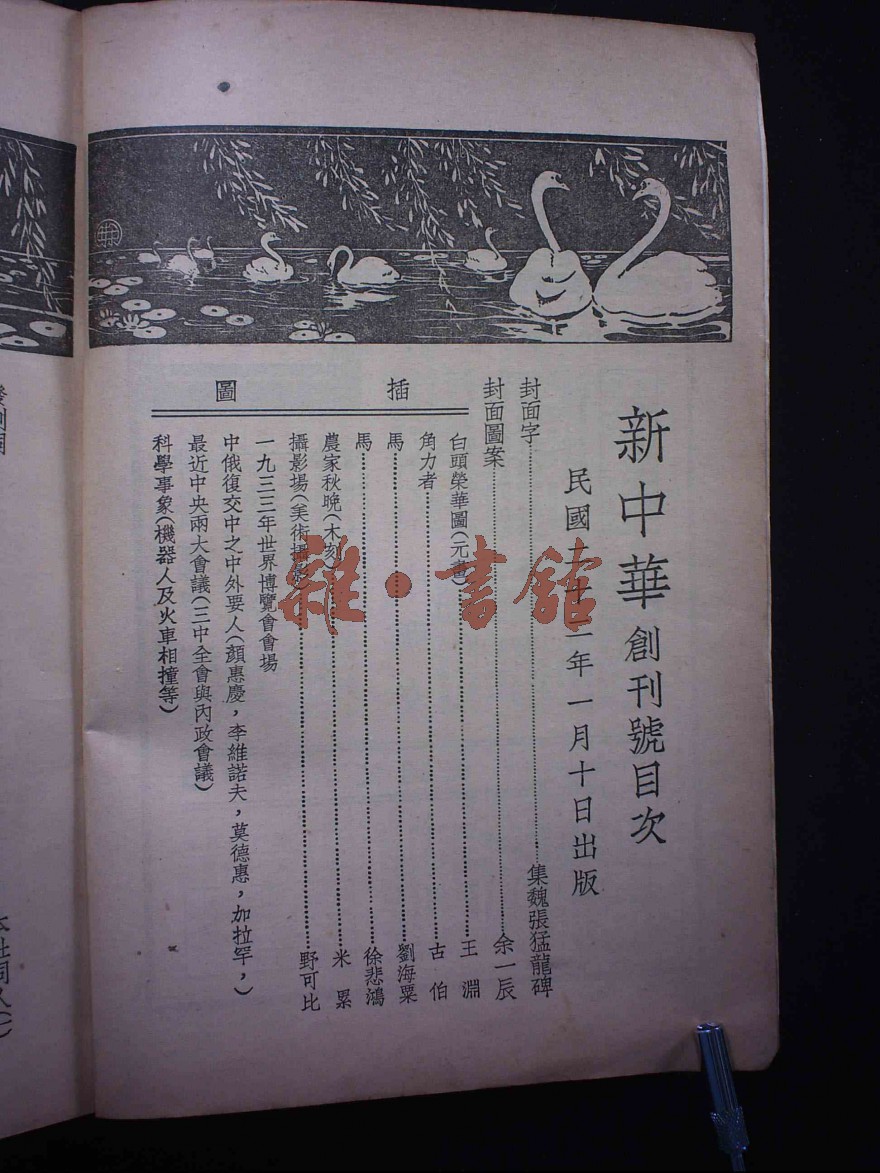 新中華創刊號目次
民國二十二年一月十日出版
封面字……集魏張猛龍碑
封面圖案……余一辰
插圖
白頭榮華圖(元畫)……王淵
角力者……古伯
馬……劉海粟
馬……徐悲鴻
農家秋晚(木刻)……米累
攝影場(美術攝影)……野可比
一九三三年世界博覽會會場
中俄復交中之中外要人(顏惠慶，李維諾夫，莫德惠，加拉罕，)
最近中央兩大會議(三中全會與內政會議)
科學事象(機器人及火車相撞等)
雜·書館